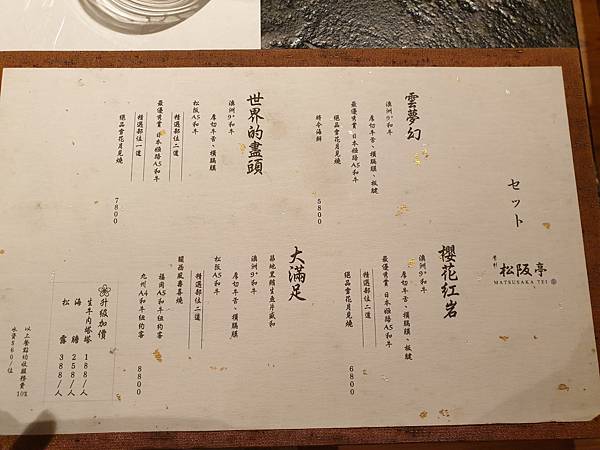 セット
松阪亭
MATSUSAKA TEI
雲夢幻
澳洲9+和牛
厚切牛舌、橫膈膜、板腱
最優秀賞 日本姬路A5和牛
時令海鮮
極品雪花月見燒
5800
櫻花紅岩
澳洲9+和牛
厚切牛舌、橫膈膜、板腱
最優秀賞 日本姬路A5和牛
精選部位二道
極品雪花月見燒
6800
世界的盡頭
澳洲9+和牛
厚切牛舌、橫膈膜
松阪A5和牛
精選部位二道
最優秀賞 日本姬路A5和牛
精選部位一道
極品雪花月見燒
7800
大滿足
築地黑鮪生魚片盛和
澳洲9+和牛
厚切牛舌、橫膈膜
松阪A5和牛
精選部位二道
關西風壽喜燒
福岡A5和牛紐約客
九州A4和牛紐約客
8800
升級加價
生牛肉塔塔 188/人
海膽 258/人
松露 388/人
以上餐點均收服務費10%
水資$60/位